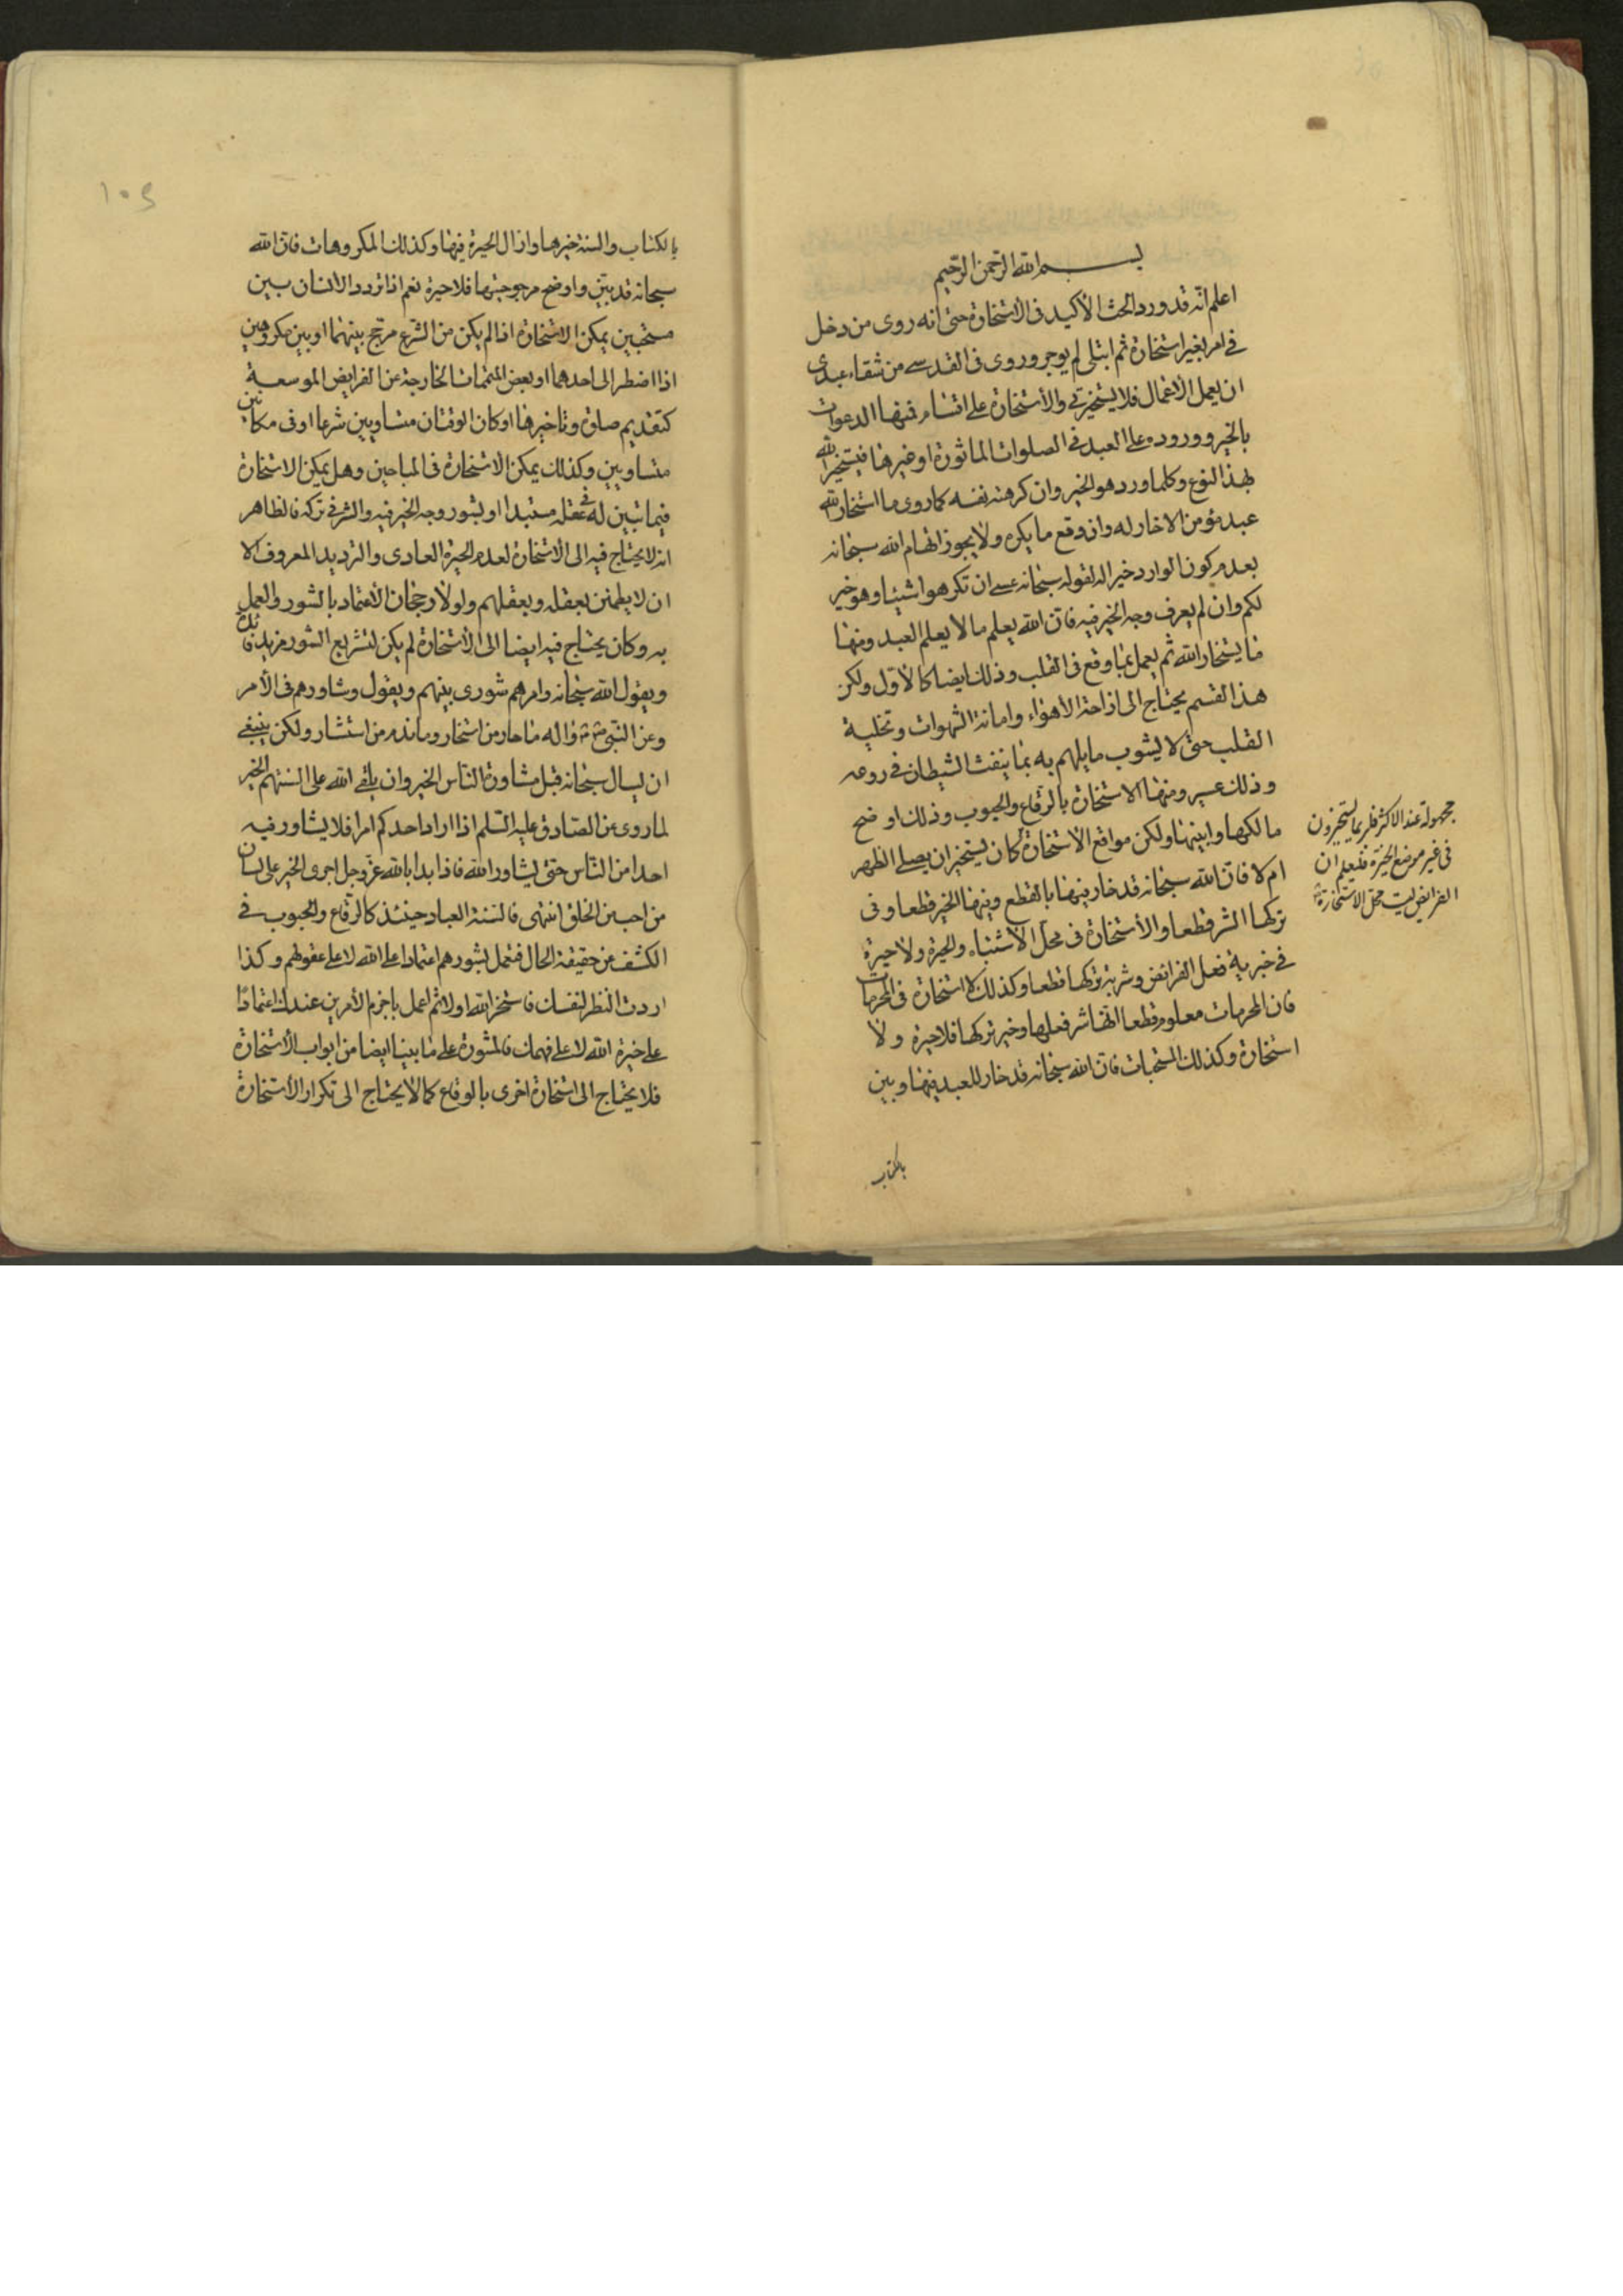 بسم الله الرحمن الرحيم
اعلم انه قد ورد الحث الأكيد فى الأستخارة حتى انه روى من دخل
فى امر بغير استخارة ثم ابتلى لم يوجر وروى فى القدسے من شقاء عبدى
ان يعمل الاعمال فلا يستخيرنى والأستخارة على اقسام فمنها الدعوات
بالخير وورود وعلى العبد فى الصلوات الماثورة او غيرها فيستخير الله
بهذا النوع وكلما ورد هو الخير وان كرهته نفسه كما روى ما استخار الله
عبد مؤمن الا خار له وان وقع ما يكره ولا يجوز اتهام الله سبحانه
بعدم كون الوارد خيرا له لقوله سبحانه عسى ان تكرهوا شيئا وهو خير
لكم وان لم يعرف وجه الخير فيه فان الله يعلم ما لا يعلم العبد ومنها
ما يستخار الله ثم يعمل بما وقع فى القلب وذلك ايضا كالأول ولكن
هذا القسم يحتاج الى ازاحة الأهواء واماتة الشهوات وتخلية
القلب حتى لا يشوب ما يلهم به بما ينفث الشيطان فى روعه
وذلك عسير ومنها الاستخارة بالرقاع والحبوب وذلك اوضح
مسالكها وابينها ولكن مواقع الأستخارة كان يستخير ان يصلے الظهر
مجهولة عند الاكثر فلربما يستخيرون
فى غير موضع الحيرة فليعلم ان
الفرائض ليست محل الاستخارة
ام لا فان الله سبحانه قد خار فيها بالقطع وفيها الخير قطعا وفى
تركها الشر قطعا والأستخارة فى محل الأشتباه والحيرة ولا حيرة
فى خيرية فعل الفرائض وشرية تركها قطعا وكذلك لا استخارة فى المحرمات
فان المحرمات معلوم قطعا انها شر فعلها وخير تركها فلا حيرة ولا
استخارة وكذلك المستحبات فان الله سبحانه قد خار للعبد فيها وبين
بالكتاب
١٠٤
بالكتاب والسنة خيرها وازال الحيرة فيها وكذلك المكروهات فان الله
سبحانه قد بين واوضح مرجوحيتها فلا حيرة نعم اذا تردد الانسان بين
مستحبين يمكن الاستخارة اذا لم يكن من الشرع مرجح بينهما او بين مكروهين
اذا اضطر الى احدهما او بعض المتممات الخارجة عن الفرايض الموسعة
كتقديم صلوة وتاخيرها او كان الوقتان متساويين شرعا او فى مكانين
متساويين وكذلك يمكن الاستخارة فى المباحين وهل يمكن الاستخارة
فيما تبين له فى عقله مستبدا او بشور وجه الخير فيه والشر فى تركه فالظاهر
انه لا يحتاج فيه الى الاستخارة لعدم الحيرة العادى والترديد المعروف الا
ان لا يطمئن بعقله وبعقلهم ولولا رجحان الأعتماد بالشور والعمل
به وكان يحتاج فيه ايضا الى الأستخارة لم يكن لتشريع الشور مزيد فائدة
ويقول الله سبحانه وامرهم شورى بينهم ويقول وشاورهم فى الأمر
وعن النبى واله ما حار من استخار وما ندم من استشار ولكن ينبغى
ان يسال سبحانه قبل مشاورة الناس الخير وان يلقى الله على السنتهم الخير
لما روى عن الصادق عليه السلم اذا اراد احدكم امرا فلا يشاور فيه
احدا من الناس حتى يشاور الله فاذا بدا بالله عز وجل اجرى الخير على لسان
من احب من الخلق انتهى فالسنة العباد حينئذ كالرقاع والحبوب فى
الكشف عن حقيقة الحال فتعمل بشورهم اعتمادا على الله لا على عقولهم وكذا
اردت النظر لنفسك فاستخر الله اولا ثم اعمل باجزم الأمرين عندك اعتمادا
على خيرة الله لا على فهمك فالمشورة على ما بينا ايضا من ابواب الأستخارة
فلا يحتاج الى استخارة اخرى بالرقاع كما لا يحتاج الى تكرار الأستخارة